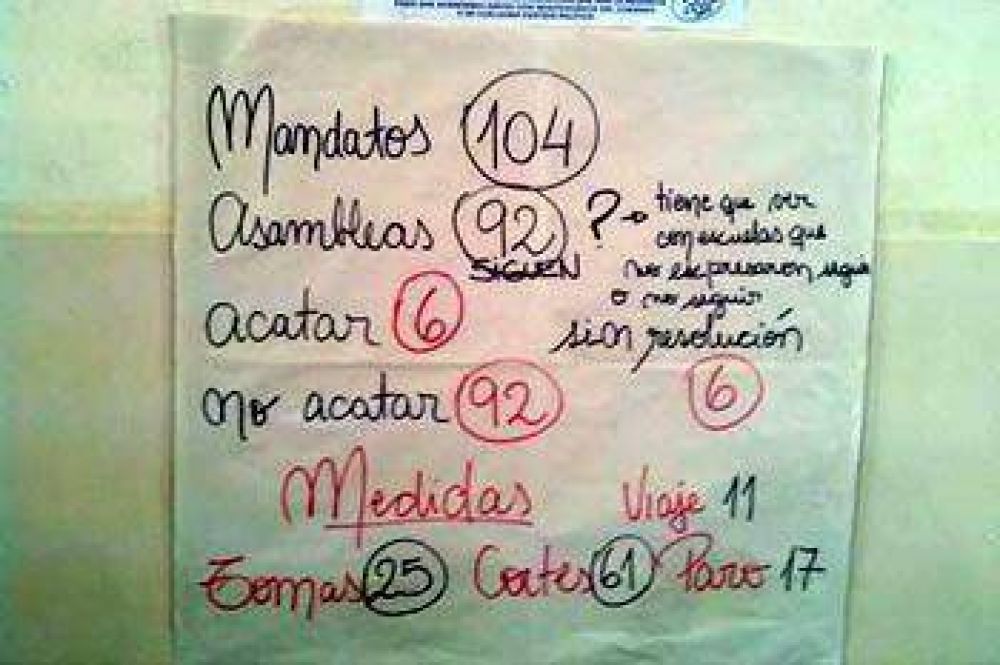 Mandatos 104
Asambleas 92 ? tiene que ver
SIGUEN con escuelas que
no expresaron seguir
o no seguir
acatar 6 sin resolución
no acatar 92 6
Medidas Viaje 11
Tomas 25 Cortes 61 Paro 17